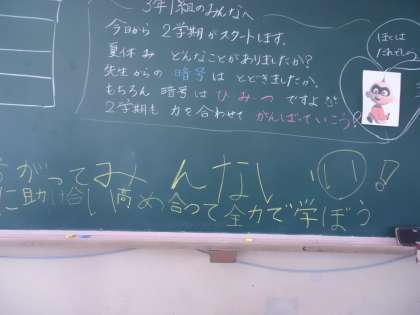 3年1組のみんなへ
今日から 2学期がスタートします。
夏休み どんなことがありましたか?
先生からの 暗号 は とどきましたか。
もちろん 暗号は ひ・み・つ ですよ
2学期も 力を合わせて がんばっていこう!
ぼくは
だれでしょ
がって みんな いい!
に助け合い高め合って全力で学ぼう